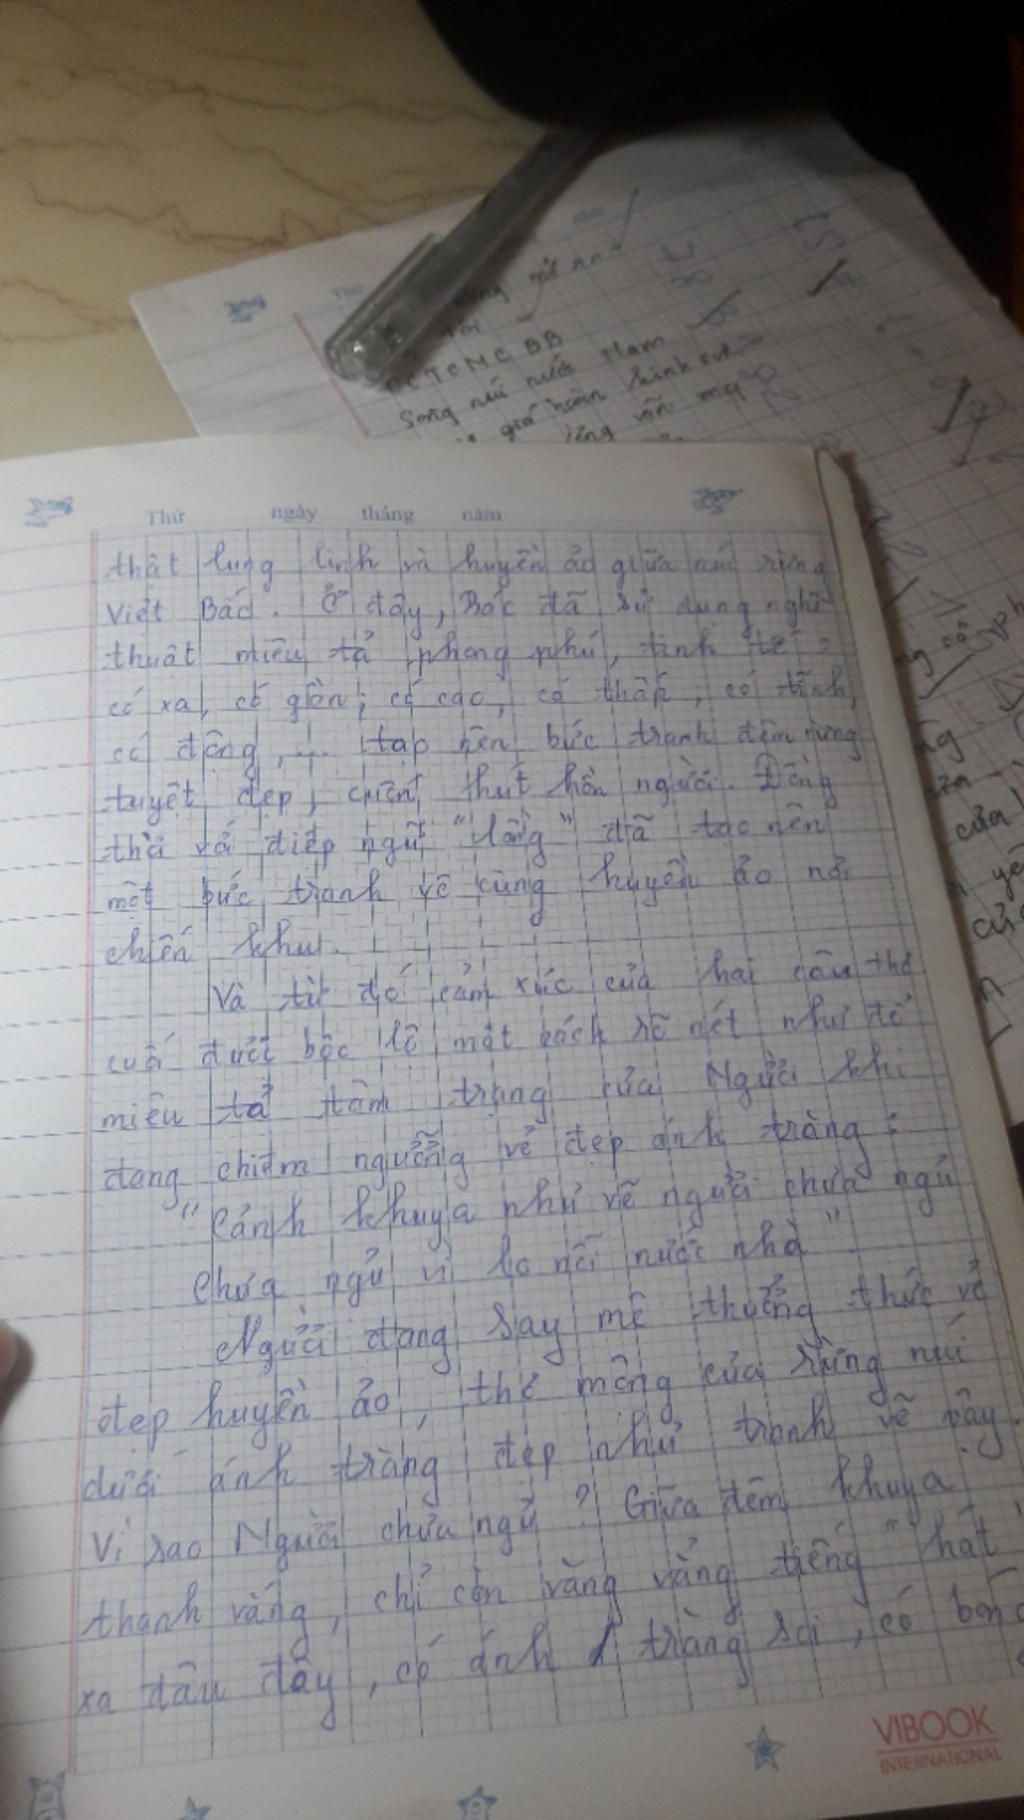 Thứ ngày tháng năm
CCTCMCBB
Song núi nước Nam
thật lung linh và huyền ảo giữa núi rừng
Việt Bắc. Ở đây, Bác đã sử dụng nghệ
thuật miêu tả phong phú, tinh tế :
có xa, có gần; có cao, có thấp; có tĩnh,
có động, ... tạo nên bức tranh đêm rừng
tuyệt đẹp, cuốn hút hồn người. Đồng
thời với điệp ngữ "lồng" đã tạo nên
một bức tranh vô cùng huyền ảo nơi
chiến khu.
Và từ đó cảm xúc của hai câu thơ
cuối được bộc lộ một cách rõ nét như để
miêu tả tâm trạng của Người khi
đang chiêm ngưỡng vẻ đẹp ánh trăng :
"Cảnh khuya như vẽ người chưa ngủ
Chưa ngủ vì lo nỗi nước nhà"
Người đang say mê thưởng thức vẻ
đẹp huyền ảo, thơ mộng của rừng núi
dưới ánh trăng đẹp như tranh vẽ vậy.
Vì sao Người chưa ngủ ? Giữa đêm khuya
thanh vắng, chỉ còn văng vẳng tiếng "hát
xa đâu đây, có ánh trăng soi, có bóng
VIBOOK
INTERNATIONAL